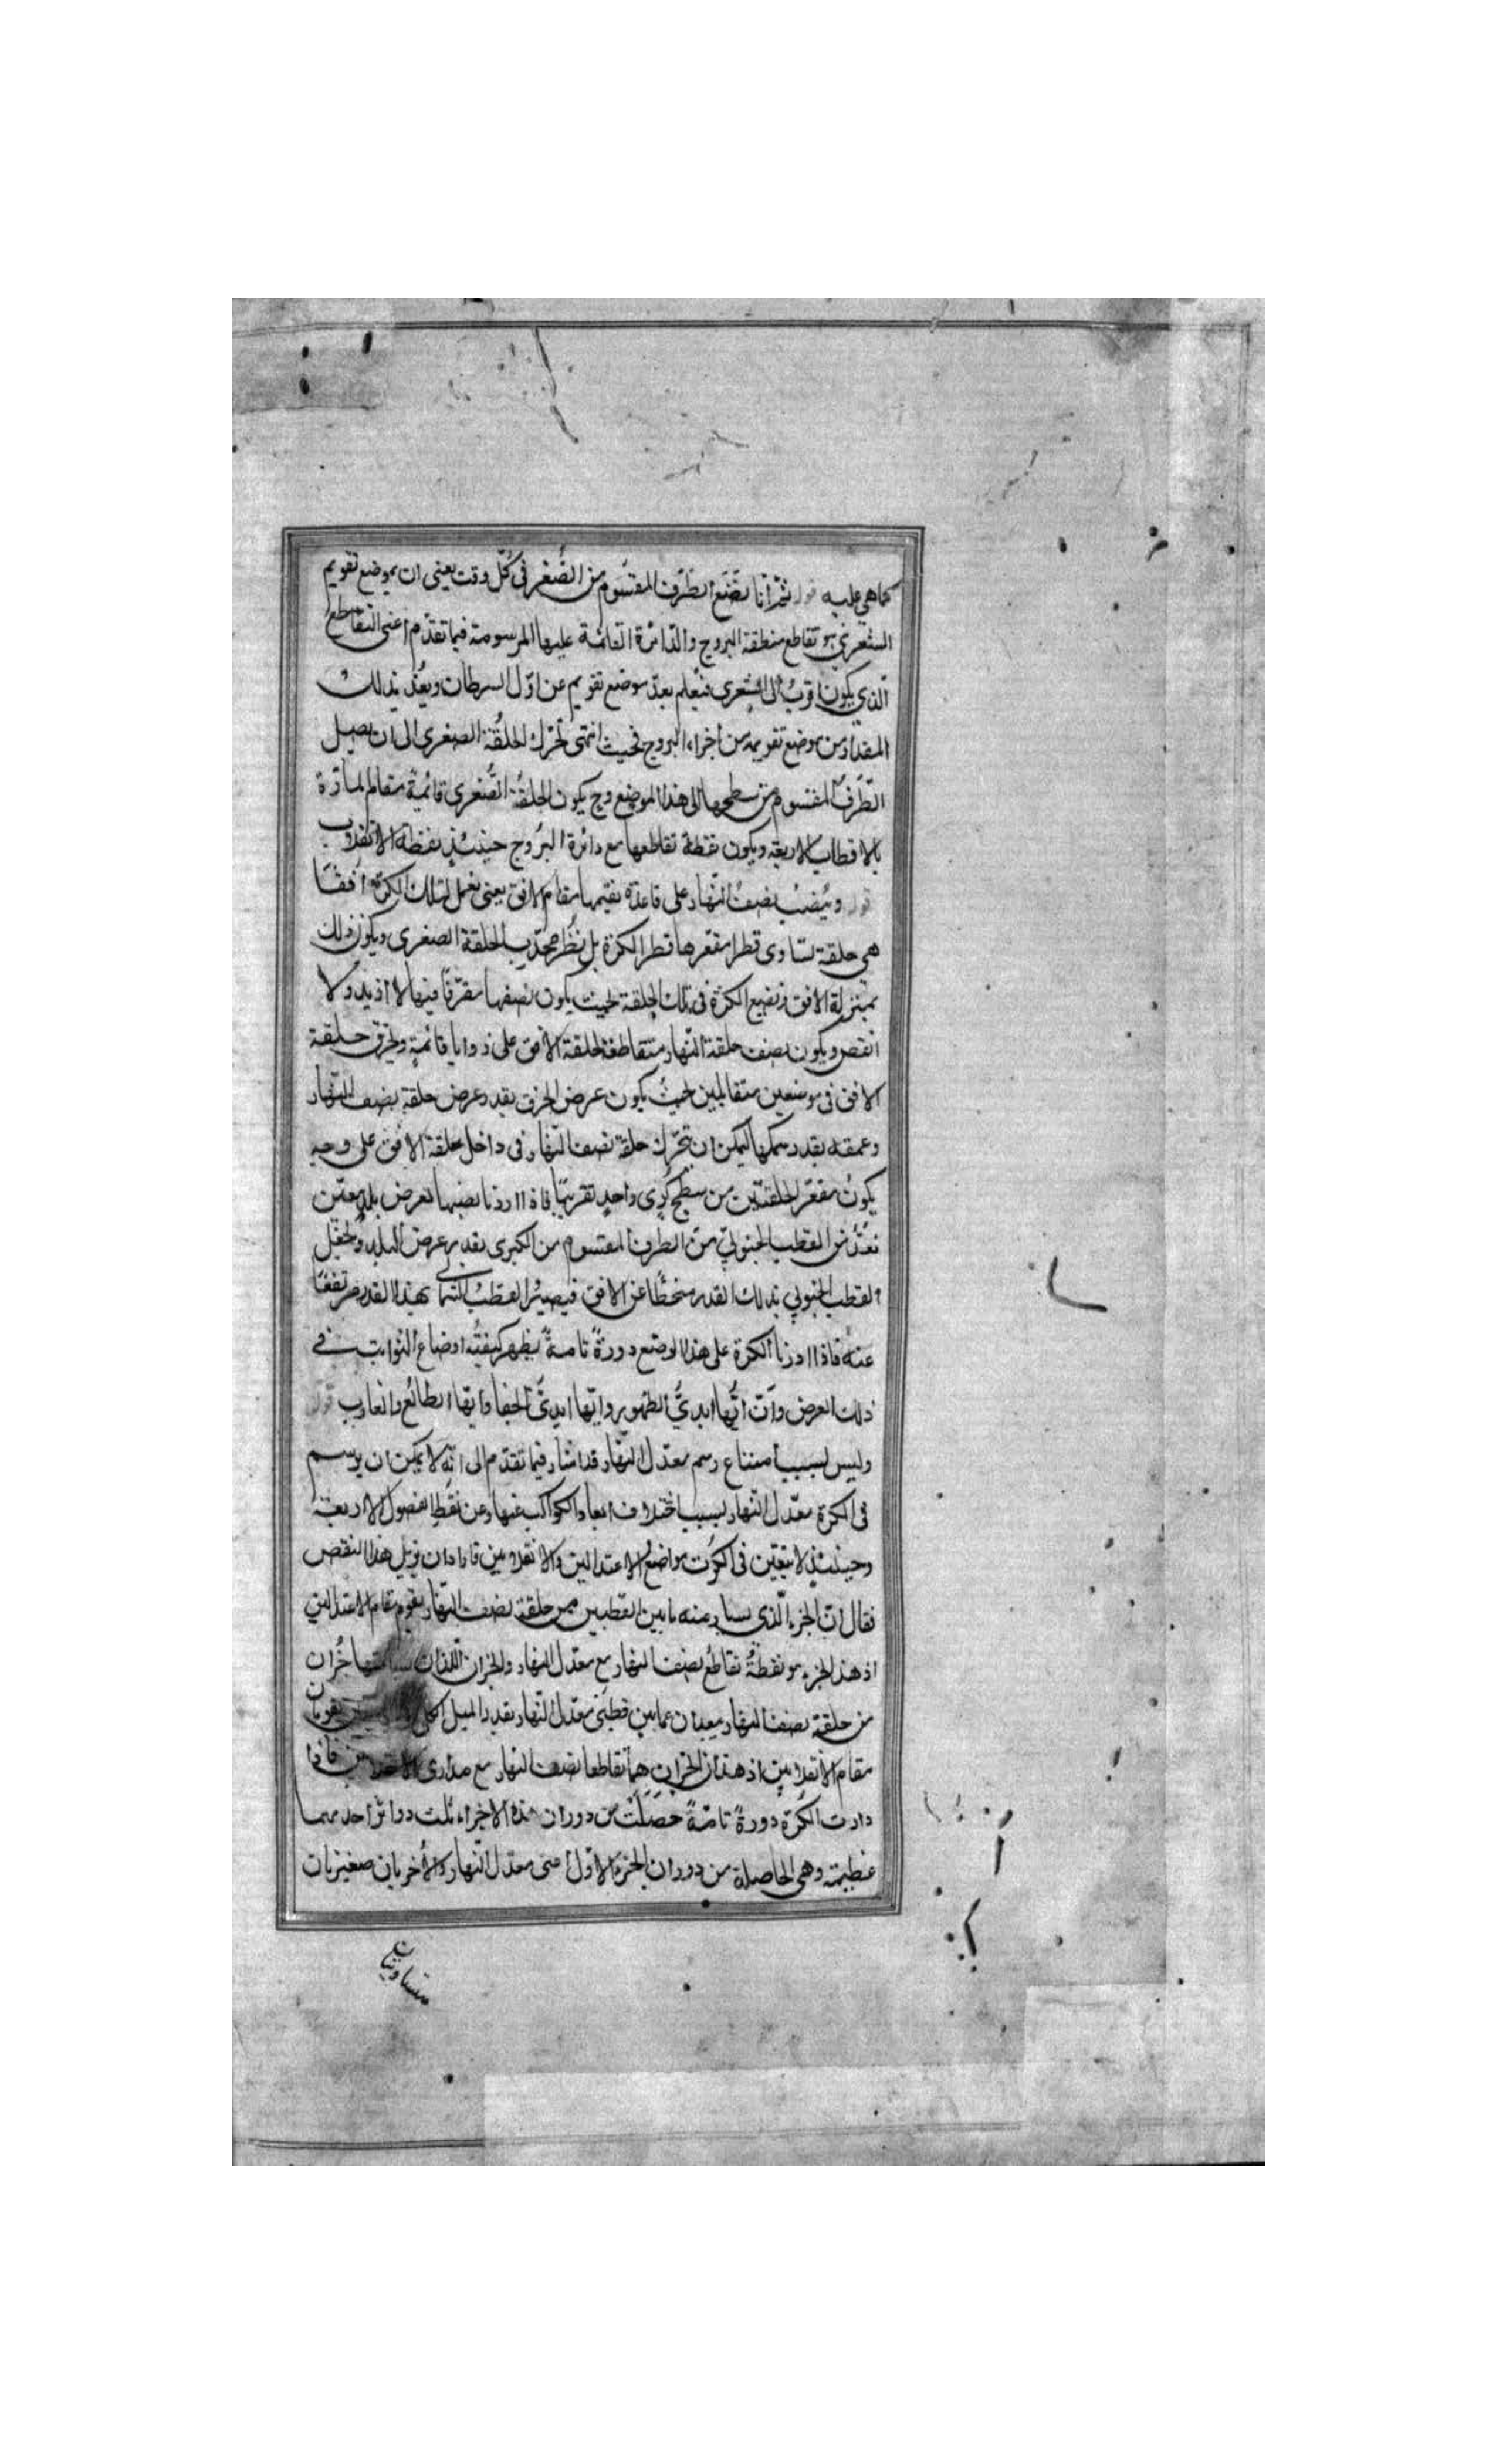 كما هي عليه قوله ثم انا نضع الطرف المقسوم من الصغرى في كل وقت يعني ان موضع تقويم
الشعرى هو تقاطع منطقة البروج والدائرة القائمة عليها المرسومة فيما تقدم اعني التقاطع
الذي يكون اقرب الى الشعرى فنعلم بعد موضع تقويم عن اول السرطان ويعد بذلك
المقدار من موضع تقويمه من اجزاء البروج فحيث انتهى تحرك الحلقة الصغرى الى ان يصل
الطرف المقسوم من سطحها الى هذا الموضع وح يكون الحلقة الصغرى قائمة مقام المارة
بالاقطاب الاربعة ويكون نقطة تقاطعها مع دائرة البروج حينئذ نقطة الانقلاب
قوله وينصب نصف النهار على قاعدة نقيمها مقام الافق يعني نعمل لتلك الكرة افقا
هي حلقة تساوى قطر مقعرها قطر الكرة بل قطر محدب الحلقة الصغرى ويكون ذلك
بمنزلة الافق ونضع الكرة في تلك الحلقة بحيث يكون نصفها مغرقا فيها لا ازيد ولا
انقص ويكون نصف حلقة النهار متقاطعة لحلقة الافق على زوايا قائمة ويخرق حلقة
الافق في موضعين متقابلين بحيث يكون عرض الخرق بقدر عرض حلقة نصف النهار
وعمقه بقدر سمكها ليمكن ان تتحرك حلقة نصف النهار في داخل حلقة الافق على وجه
يكون مقعر الحلقتين من سطح كرى واحد تقريبا فاذا اردنا نصبها لعرض بلد معين
نعد من القطب الجنوبي من الطرف المقسوم من الكبرى بقدر عرض البلد ونجعل
القطب الجنوبي بذلك القدر منحطا عن الافق فيصير القطب الشمالي بهذا القدر مرتفعا
عنه فاذا ادرنا الكرة على هذا الوضع دورة تامة يظهر كيفية اوضاع الثوابت في
ذلك العرض وان ايها ابدي الظهور وايها ابدي الخفا وايها الطالع والغارب قوله
وليس بسبب امتناع رسم معدل النهار قد اشار فيما تقدم الى انه لا يمكن ان يرسم
في الكرة معدل النهار بسبب اختلاف ابعاد الكواكب عنها وعن نقط الفصول الاربعة
وحينئذ لا يتعين في الكرة مواضع الاعتدالين والانقلابين فاراد ان يزيل هذا النقص
فقال ان الجزء الذي بعده ما بين القطبين من حلقة نصف النهار يقوم مقام الاعتدالين
اذ هذا الجزء هو نقطة تقاطع نصف النهار مع معدل النهار والجزان اللذان جزان
من حلقة نصف النهار يبعدان عما بين قطبي معدل النهار بقدر الميل يقومان
مقام الانقلابين اذ هذان الجزان هما تقاطعا نصف النهار مع مداري فاذا
دارت الكرة دورة تامة حصلت من دوران هذه الاجزاء ثلث دوائر احديهما
عظيمة وهي الحاصلة من دوران الجزء الاول اعني معدل النهار والاخريان صغيرتان
متساويتان